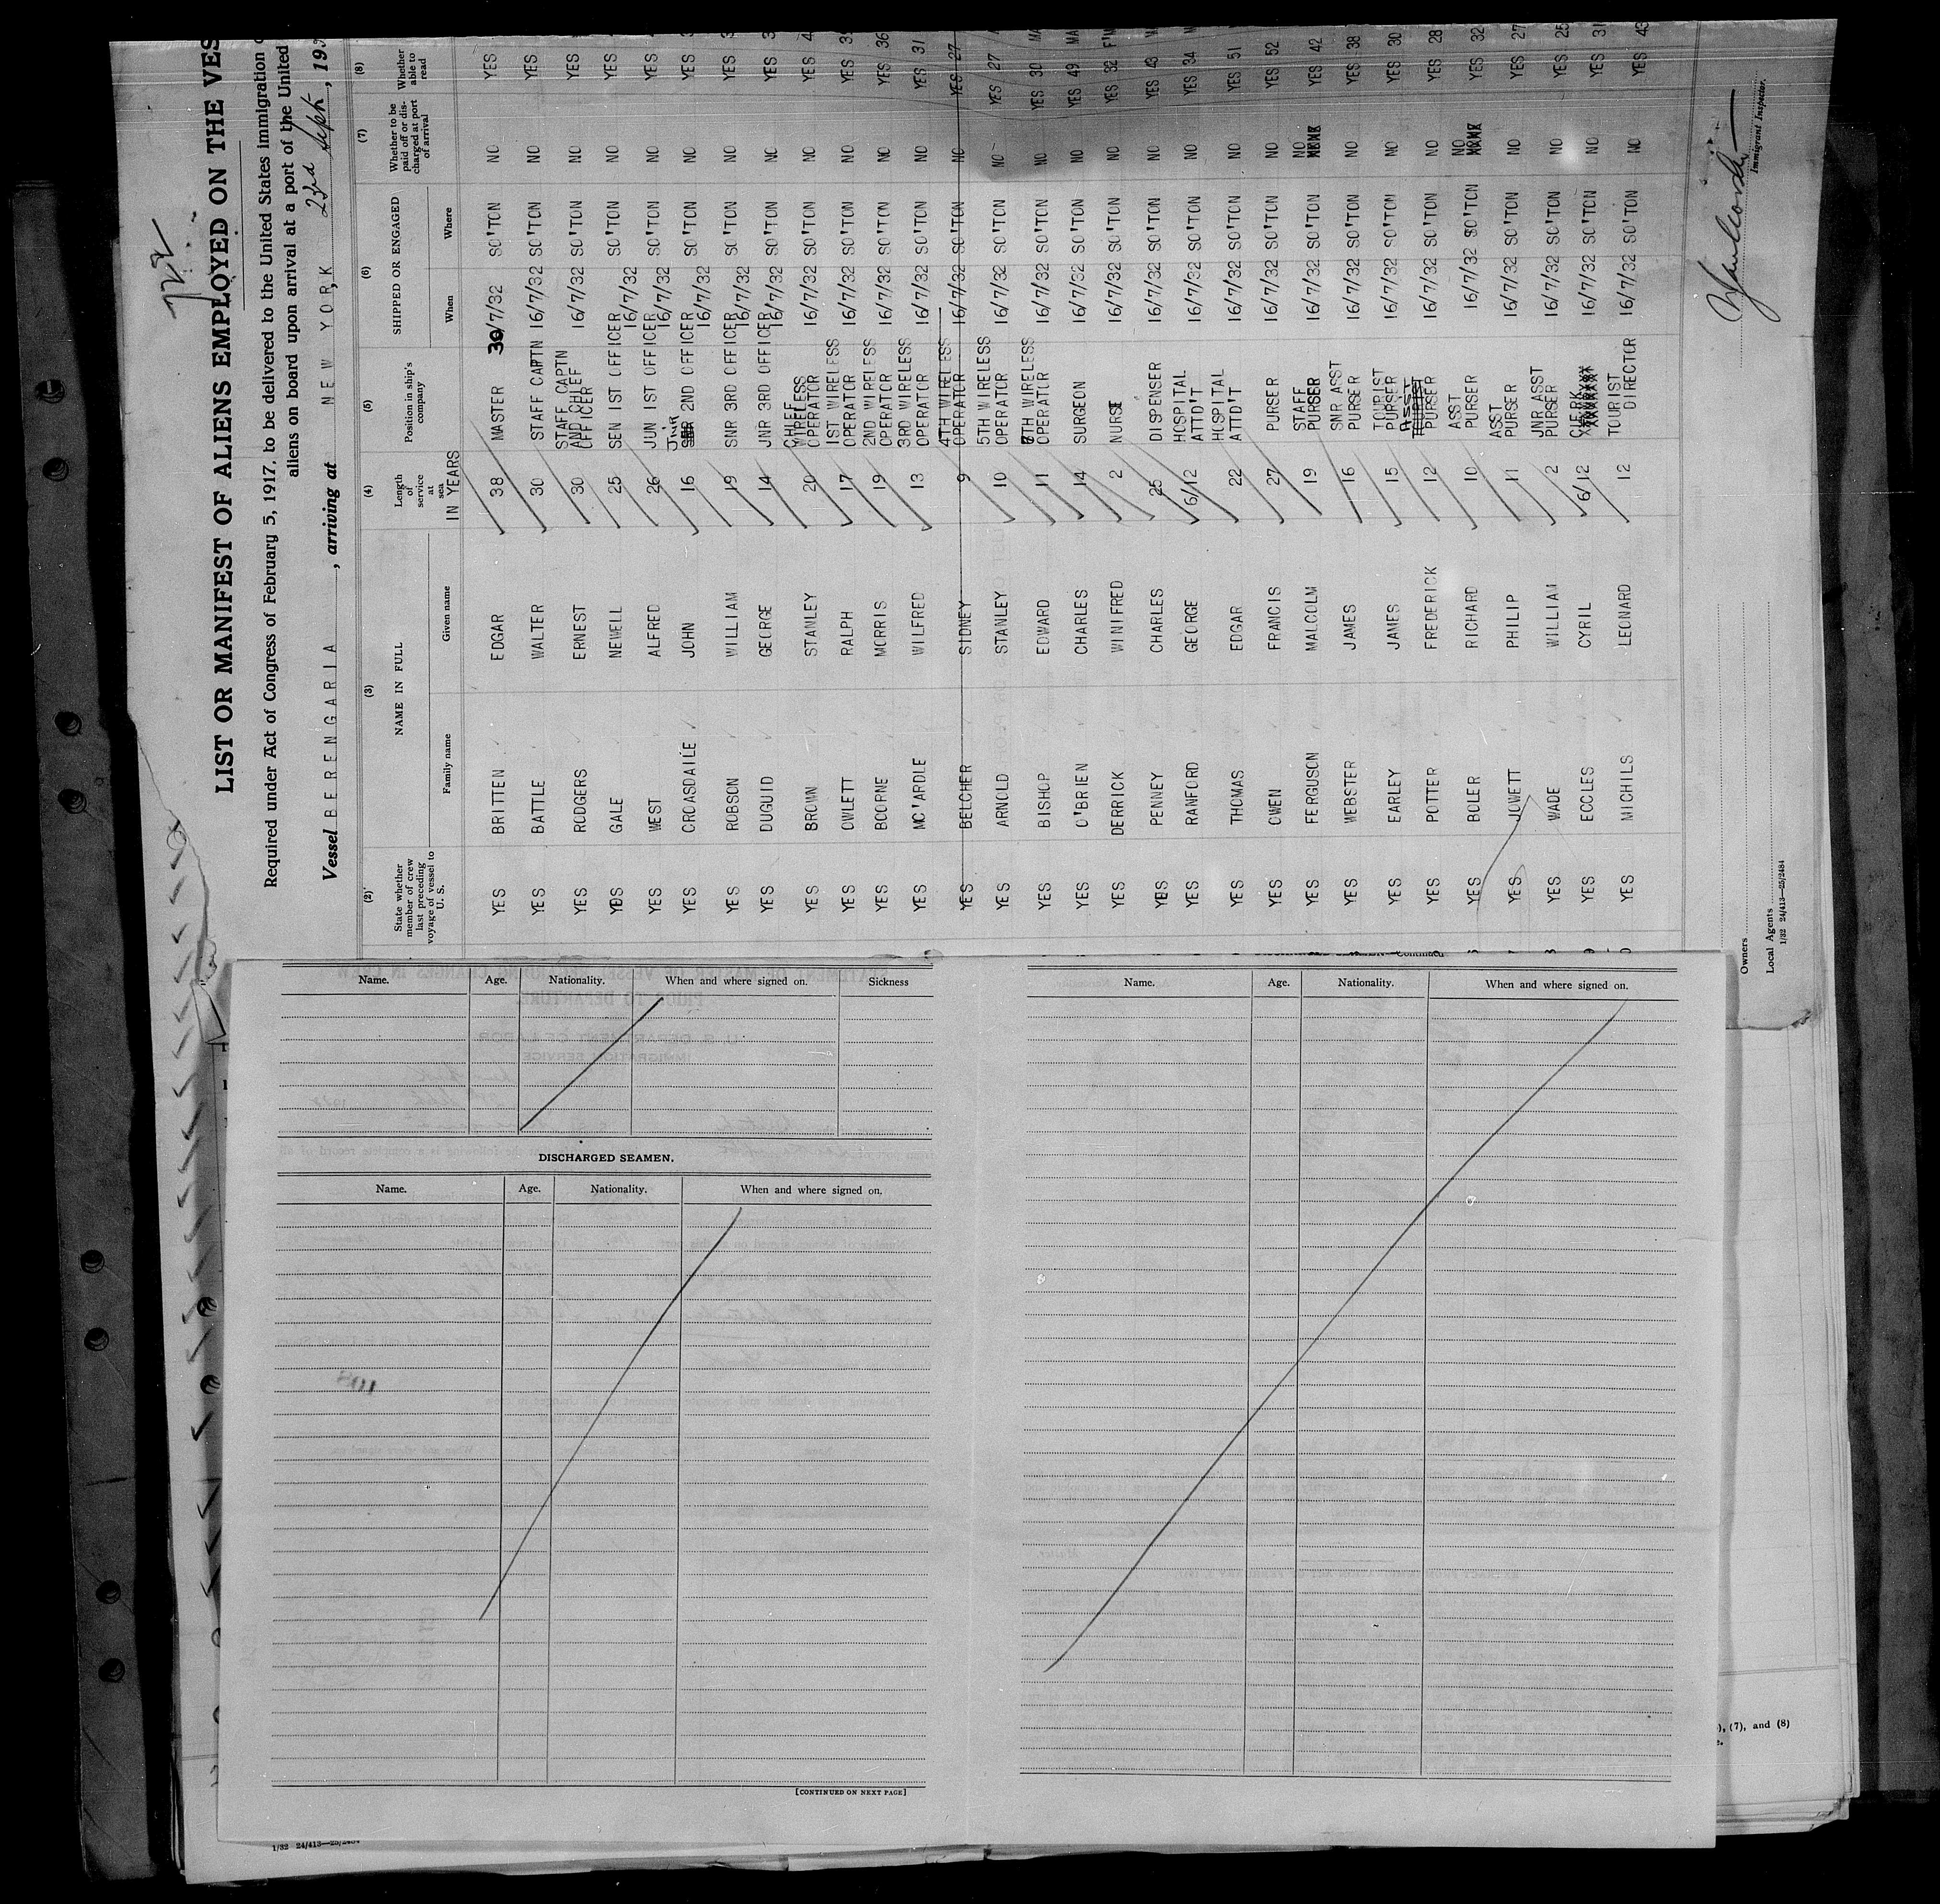 722
LIST OR MANIFEST OF ALIENS EMPLOYED ON THE VES
Required under Act of Congress of February 5, 1917, to be delivered to the United States immigration
aliens on board upon arrival at a port of the United
Vessel BERENGARIA, arriving at NEW YORK, 23rd Sept, 193
(2) (3) (4) (5) (6) (7) (8)
State whether member of crew last preceding voyage of vessel to U. S. NAME IN FULL Family name Given name Length of service at sea IN YEARS Position in ship's company SHIPPED OR ENGAGED When Where Whether to be paid off or discharged at port of arrival Whether able to read
YES BRITTEN EDGAR 38 MASTER 30/7/32 SO'TON NO YES
YES BATTLE WALTER 30 STAFF CAPTN 16/7/32 SO'TON NO YES
YES RODGERS ERNEST 30 STAFF CAPTN AND CHIEF OFFICER 16/7/32 SO'TON NO YES
YES GALE NEWELL 25 SEN 1ST OFFICER 16/7/32 SO'TON NO YES
YES WEST ALFRED 26 JUN 1ST OFFICER 16/7/32 SO'TON NO YES
YES CROASDAILE JOHN 16 JNR 2ND OFFICER 16/7/32 SO'TON NO YES
YES ROBSON WILLIAM 19 SNR 3RD OFFICER 16/7/32 SO'TON NO YES
YES DUGUID GEORGE 14 JNR 3RD OFFICER 16/7/32 SO'TON NO YES
YES BROWN STANLEY 20 CHIEF WIRELESS OPERATOR 16/7/32 SO'TON NO YES
YES OWLETT RALPH 17 1ST WIRELESS OPERATOR 16/7/32 SO'TON NO YES
YES BOORNE MORRIS 19 2ND WIRELESS OPERATOR 16/7/32 SO'TON NO YES 36
YES MC'ARDLE WILFRED 13 3RD WIRELESS OPERATOR 16/7/32 SO'TON NO YES 31
YES BELCHER SIDNEY 9 4TH WIRELESS OPERATOR 16/7/32 SO'TON NO YES 27
YES ARNOLD STANLEY 10 5TH WIRELESS OPERATOR 16/7/32 SO'TON NO YES 27
YES BISHOP EDWARD 11 TH WIRELESS OPERATOR 16/7/32 SO'TON NO YES 30 MA
YES O'BRIEN CHARLES 14 SURGEON 16/7/32 SO'TON NO YES 49 MA
YES DERRICK WINIFRED 2 NURSE 16/7/32 SO'TON NO YES 32
YES PENNEY CHARLES 25 DISPENSER 16/7/32 SO'TON NO YES 43
YES RANFORD GEORGE 6/12 HOSPITAL ATTD'T 16/7/32 SO'TON NO YES 34
YES THOMAS EDGAR 22 HOSPITAL ATTD'T 16/7/32 SO'TON NO YES 51
YES OWEN FRANCIS 27 PURSER 16/7/32 SO'TON NO YES 52
YES FERGUSON MALCOLM 19 STAFF PURSER 16/7/32 SO'TON NO YES 42
YES WEBSTER JAMES 16 SNR ASST PURSER 16/7/32 SO'TON NO YES 38
YES EARLEY JAMES 15 TOURIST PURSER 16/7/32 SO'TON NO YES 30
YES POTTER FREDERICK 12 ASST PURSER 16/7/32 SO'TON NO YES 28
YES BOLER RICHARD 10 ASST PURSER 16/7/32 SO'TON NO YES 32
YES JOWETT PHILIP 11 ASST PURSER 16/7/32 SO'TON NO YES 27
YES WADE WILLIAM 2 JNR ASST PURSER 16/7/32 SO'TON NO YES 25
YES ECCLES CYRIL 6/12 CLERK 16/7/32 SO'TON NO YES 31
YES MICHILS LEONARD 12 TOURIST DIRECTOR 16/7/32 SO'TON NO YES 43
Immigrant Inspector.
Owners
Local Agents
1/32 24/413—25/2484
Name. Age. Nationality. When and where signed on. Sickness
DISCHARGED SEAMEN.
Name. Age. Nationality. When and where signed on.
[CONTINUED ON NEXT PAGE]
Name. Age. Nationality. When and where signed on.
), (7), and (8)
1/32 24/413—25/2484